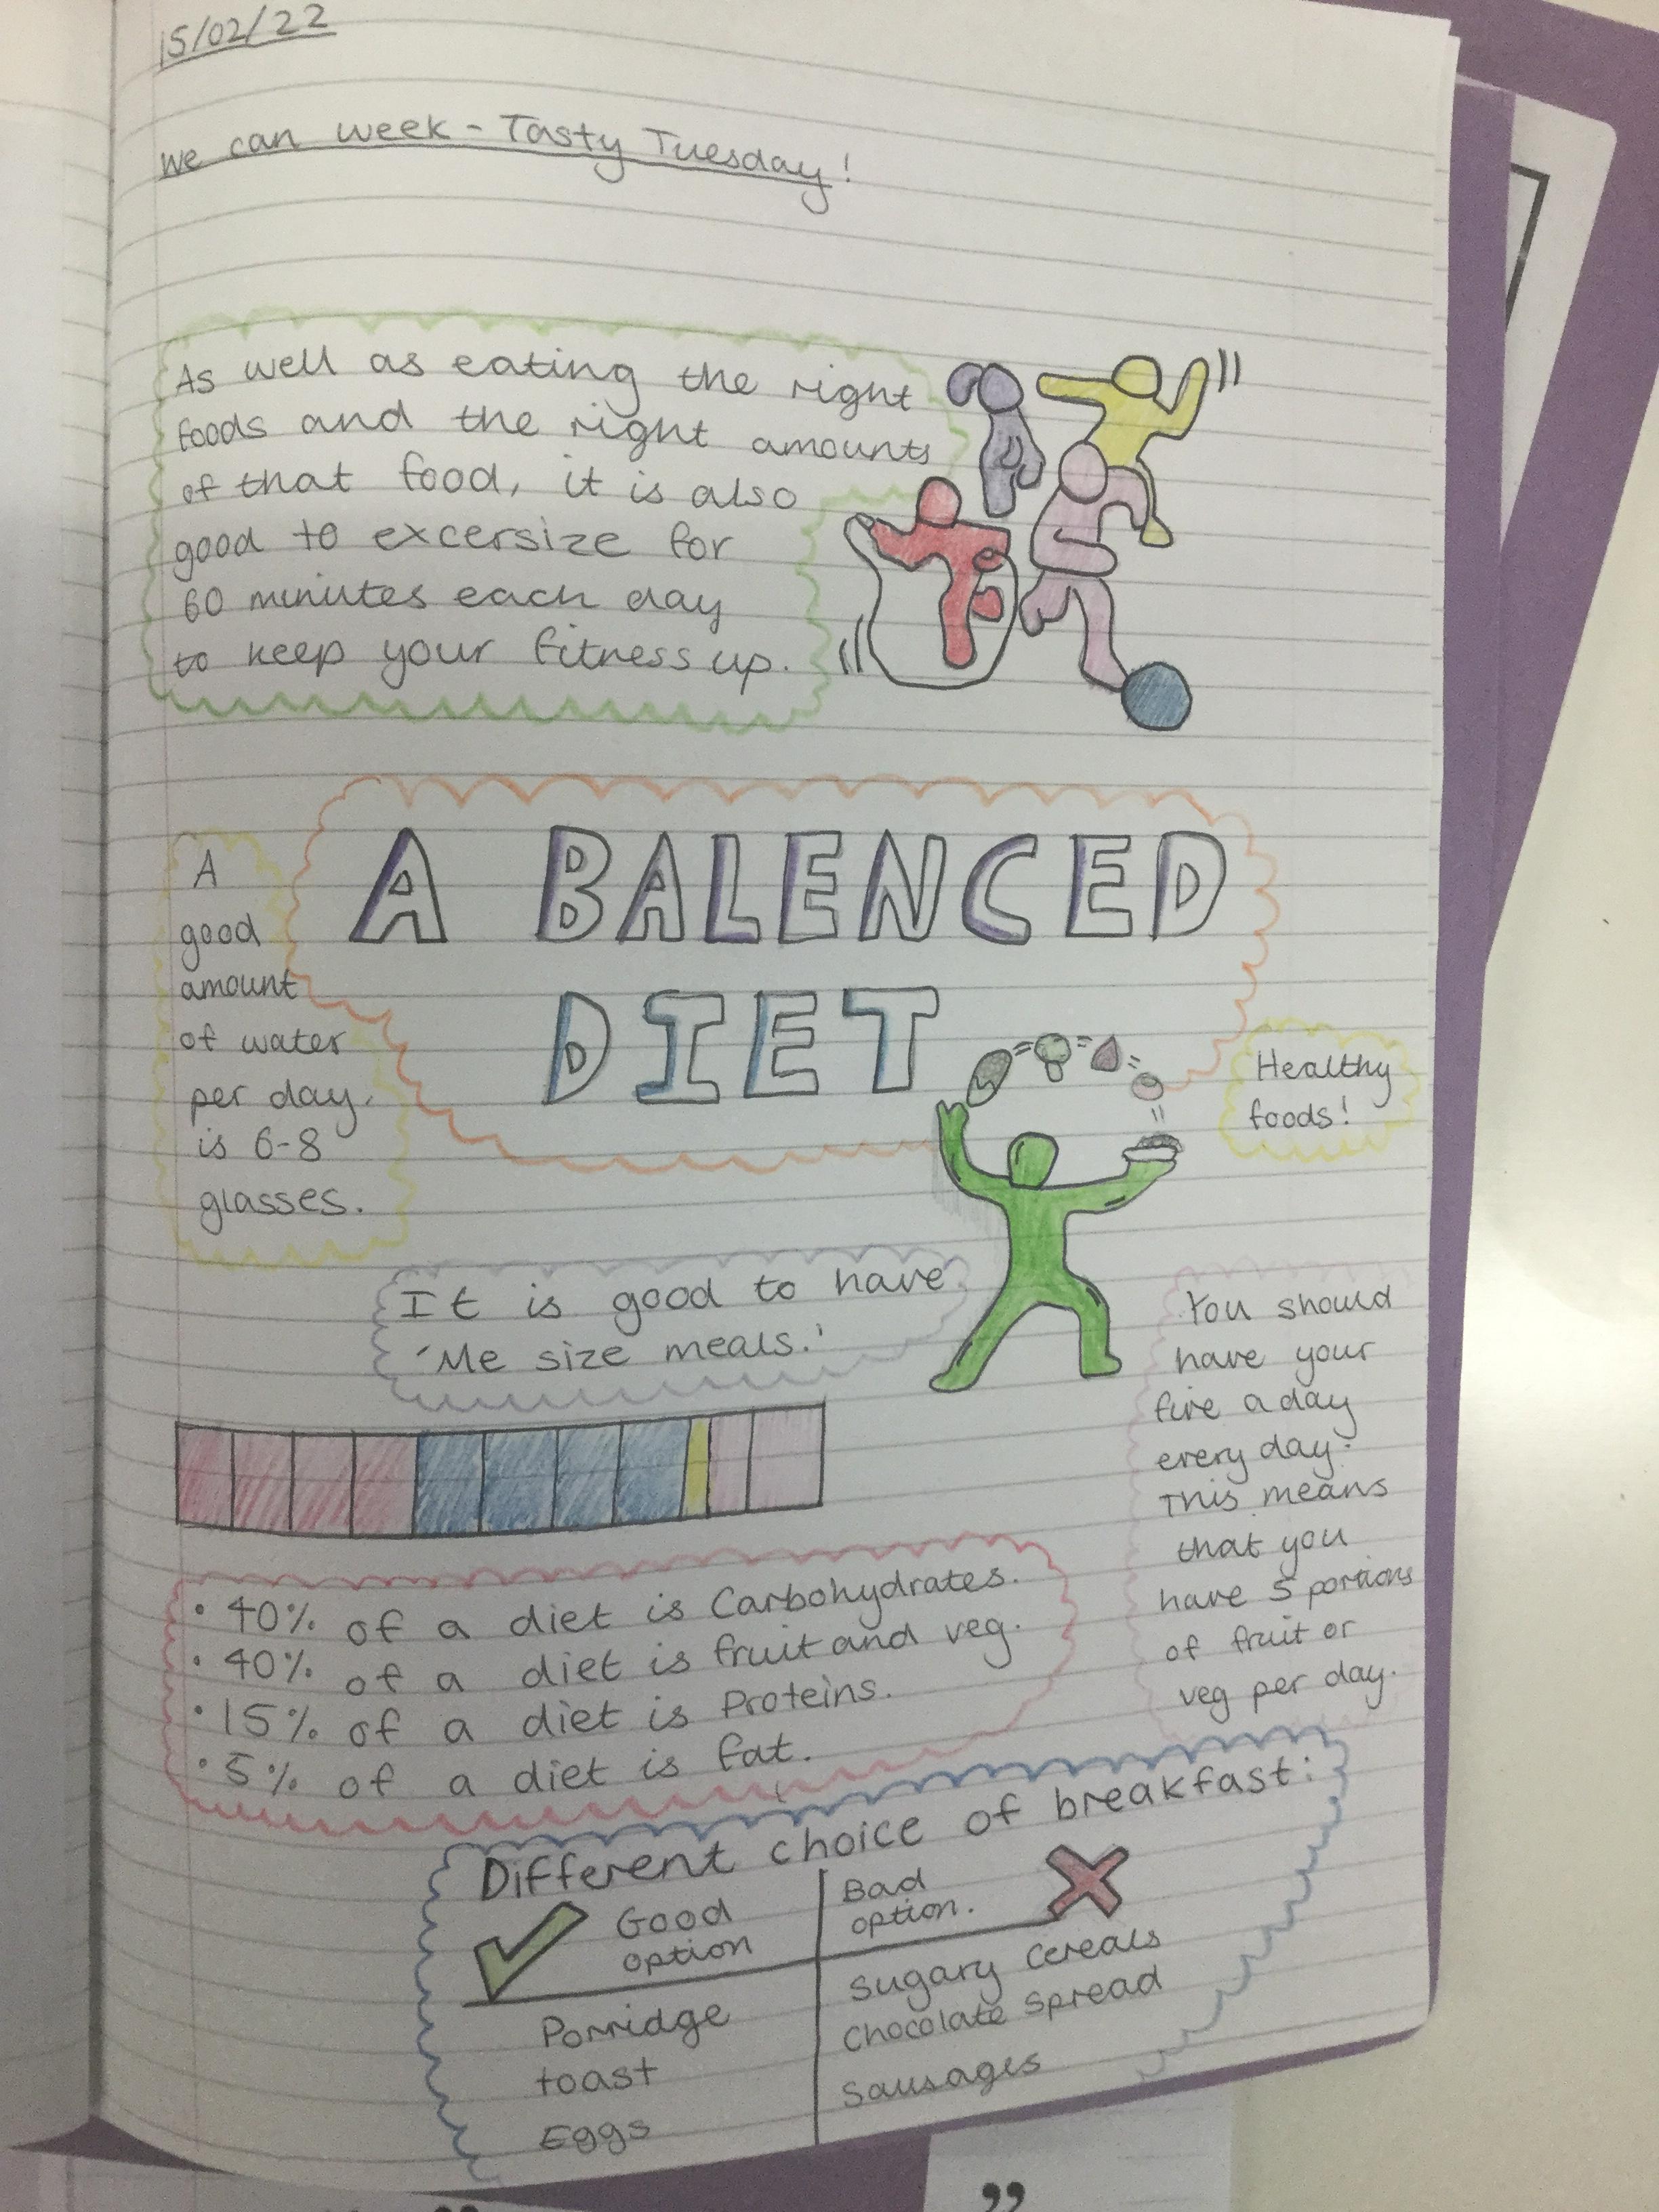 15/02/22
We can week - Tasty Tuesday!
As well as eating the right
foods and the right amounts
of that food, it is also
good to excersize for
60 minutes each day
to keep your fitness up.
A BALENCED
DIET
A
good
amount
of water
per day.
is 6-8
glasses.
Healthy
foods!
It is good to have
'Me size meals.'
You should
have your
five a day
every day.
This means
that you
have 5 portions
of fruit or
veg per day.
• 40% of a diet is Carbohydrates.
• 40% of a diet is fruit and veg.
• 15% of a diet is Proteins.
• 5% of a diet is fat.
Different choice of breakfast:
Good
option
Bad
option.
Porridge
toast
Eggs
Sugary Cereals
Chocolate Spread
Sausages